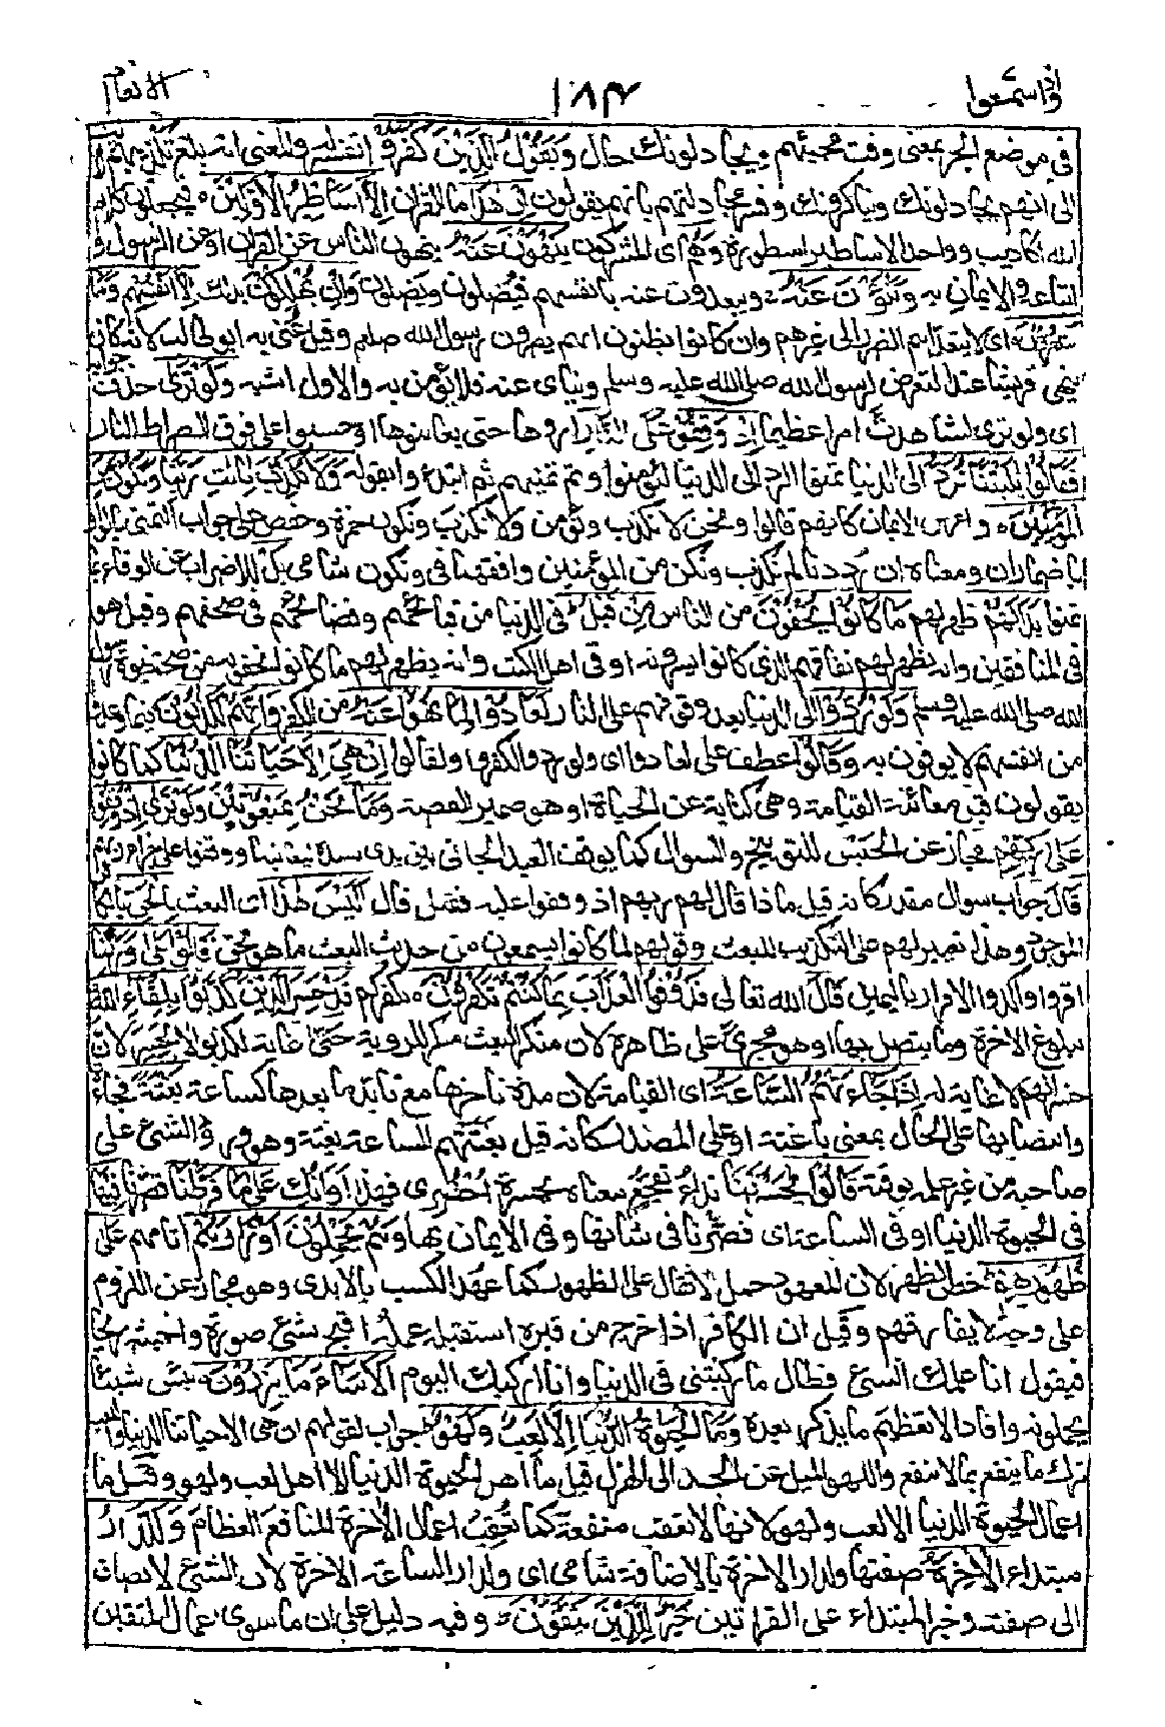 واذا سمعوا
١٨٣
الانعام
في موضع الجر بمعنى وقت مجيئهم ويجادلونك حال ويقول الذين كفروا تفسير له والمعنى انه بلغ تكذيبهم
الى انهم يجادلونك ويناكرونك وفسر مجادلتهم بانهم يقولون ان هذا ما القران الا اساطير الاولين فيجعلون كلام
الله اكاذيب وواحد الاساطير اسطورة وهم اى المشركون ينهون عنه ينهون الناس عن القران او عن الرسول و
اتباعه والايمان به وينؤن عنه ويبعدون عنه بانفسهم فيضلون ويضلون وان يهلكون بذلك الا انفسهم وما
يشعرون اى لا يتعداهم الضرر الى غيرهم وان كانوا يظنون انهم يضرون رسول الله صلعم وقيل عنى به ابو طالب لانه كان
ينهى قريشا عن التعرض لرسول الله صلى الله عليه وسلم وينأى عنه فلا يؤمن به والاول اشبه ولو ترى حذف جوابه
اى ولو ترى لشاهدت امرا عظيما اذ وقفوا على النار اروها حتى يعاينوها او حبسوا على فوق الصراط النار
فقالوا يليتنا نرد الى الدنيا تمنوا الرد الى الدنيا ليؤمنوا وتم تمنيهم ثم ابتدءوا بقوله ولا نكذب بايت ربنا ونكون من
المؤمنين واعدين الايمان كانهم قالوا ونحن لا نكذب ونؤمن ولا نكذب ونكون حمزة وحفص على جواب التمنى بالواو
باضمار ان ومعناه ان رددنا لم نكذب ونكن من المؤمنين وافقهما فى ونكون شامى بل للاضراب عن الوفاء بما
تمنوا بدا لهم ظهر لهم ما كانوا يخفون من الناس من قبل فى الدنيا من قبائحهم وفضائحهم فى صحفهم وقيل هو
فى المنافقين وانه يظهر لهم نفاقهم الذى كانوا يسرونه او فى اهل الكتب وانه يظهر لهم ما كانوا يخفونه من صحة نبوة رسول
الله صلى الله عليه وسلم ولو ردوا الى الدنيا بعد وقوفهم على النار لعادوا لما نهوا عنه من الكفر وانهم لكذبون فيما وعدوا
من انفسهم لا يوفون به وقالوا عطف على لعادوا اى ولو ردوا لكفروا ولقالوا ان هى الا حياتنا الدنيا كما كانوا
يقولون قبل معاينة القيامة وهى كناية عن الحياة او هو ضمير القصة وما نحن بمبعوثين ولو ترى اذ وقفوا
على ربهم مجاز عن الحبس للتوبيخ والسوال كما يوقف العبد الجانى بين يدى سيده ليعاتبه او وقفوا على جزاء ربهم
قال جواب سوال مقدر كانه قيل ماذا قال لهم ربهم اذ وقفوا عليه فقيل قال اليس هذا اى البعث بالحق بالكائن
الموجود وهذا تعيير لهم على التكذيب للبعث وقولهم لما كانوا يسمعون من حديث البعث ما هو بحق قالوا بلى وربنا
اقروا واكدوا الاقرار باليمين قال الله تعالى فذوقوا العذاب بما كنتم تكفرون بكفركم قد خسر الذين كذبوا بلقاء الله
ببلوغ الاخرة وما يتصل بها او هو مجرى على ظاهره لان منكر البعث منكر للروية حتى غاية لكذبوا لا لخسر لان
خسرانهم لا غاية له اذا جاءتهم الساعة اى القيامة لان مدة تاخرها مع تابد ما بعدها كساعة بغتة فجاءة
وانتصابها على الحال بمعنى باغتة او على المصدر كانه قيل بغتتهم الساعة بغتة وهو ورود الشئ على
صاحبه من غير علمه بوقته قالوا يحسرتنا نداء تفجع معناه يحسرة احضرى فهذا اوانك على ما فرطنا قصرنا فيها
فى الحيوة الدنيا او فى الساعة اى قصرنا فى شانها وفى الايمان بها وهم يحملون اوزارهم اثامهم على
ظهورهم خص الظهر لان المعهود حمل الاثقال على الظهور كما عهد الكسب بالايدى وهو مجاز عن اللزوم
على وجه لا يفارقهم وقيل ان الكافر اذا خرج من قبره استقبله عمله اقبح شئ صورة واخبثه ريحا
فيقول انا عملك السيئ فطال ما ركبتنى فى الدنيا وانا اركبك اليوم الا ساء ما يزرون بئس شيئا
يحملونه وافاد الا تعظيم ما يذكر بعده وما الحيوة الدنيا الا لعب ولهو جواب لقولهم ان هى الا حياتنا الدنيا واللعب
ترك ما ينفع بما لا ينفع واللهو الميل عن الجد الى الهزل قيل ما اهل الحيوة الدنيا الا اهل لعب ولهو وقيل ما
اعمال الحيوة الدنيا الا لعب ولهو لانها لا تعقب منفعة كما تعقب اعمال الاخرة المنافع العظام وللدار
مبتداء الاخرة صفتها ولدار الاخرة بالاضافة شامى اى ولدار الساعة الاخرة لان الشئ لا يضاف
الى صفته وخبر المبتداء على القراتين خير للذين يتقون وفيه دليل على ان ما سوى اعمال المتقين